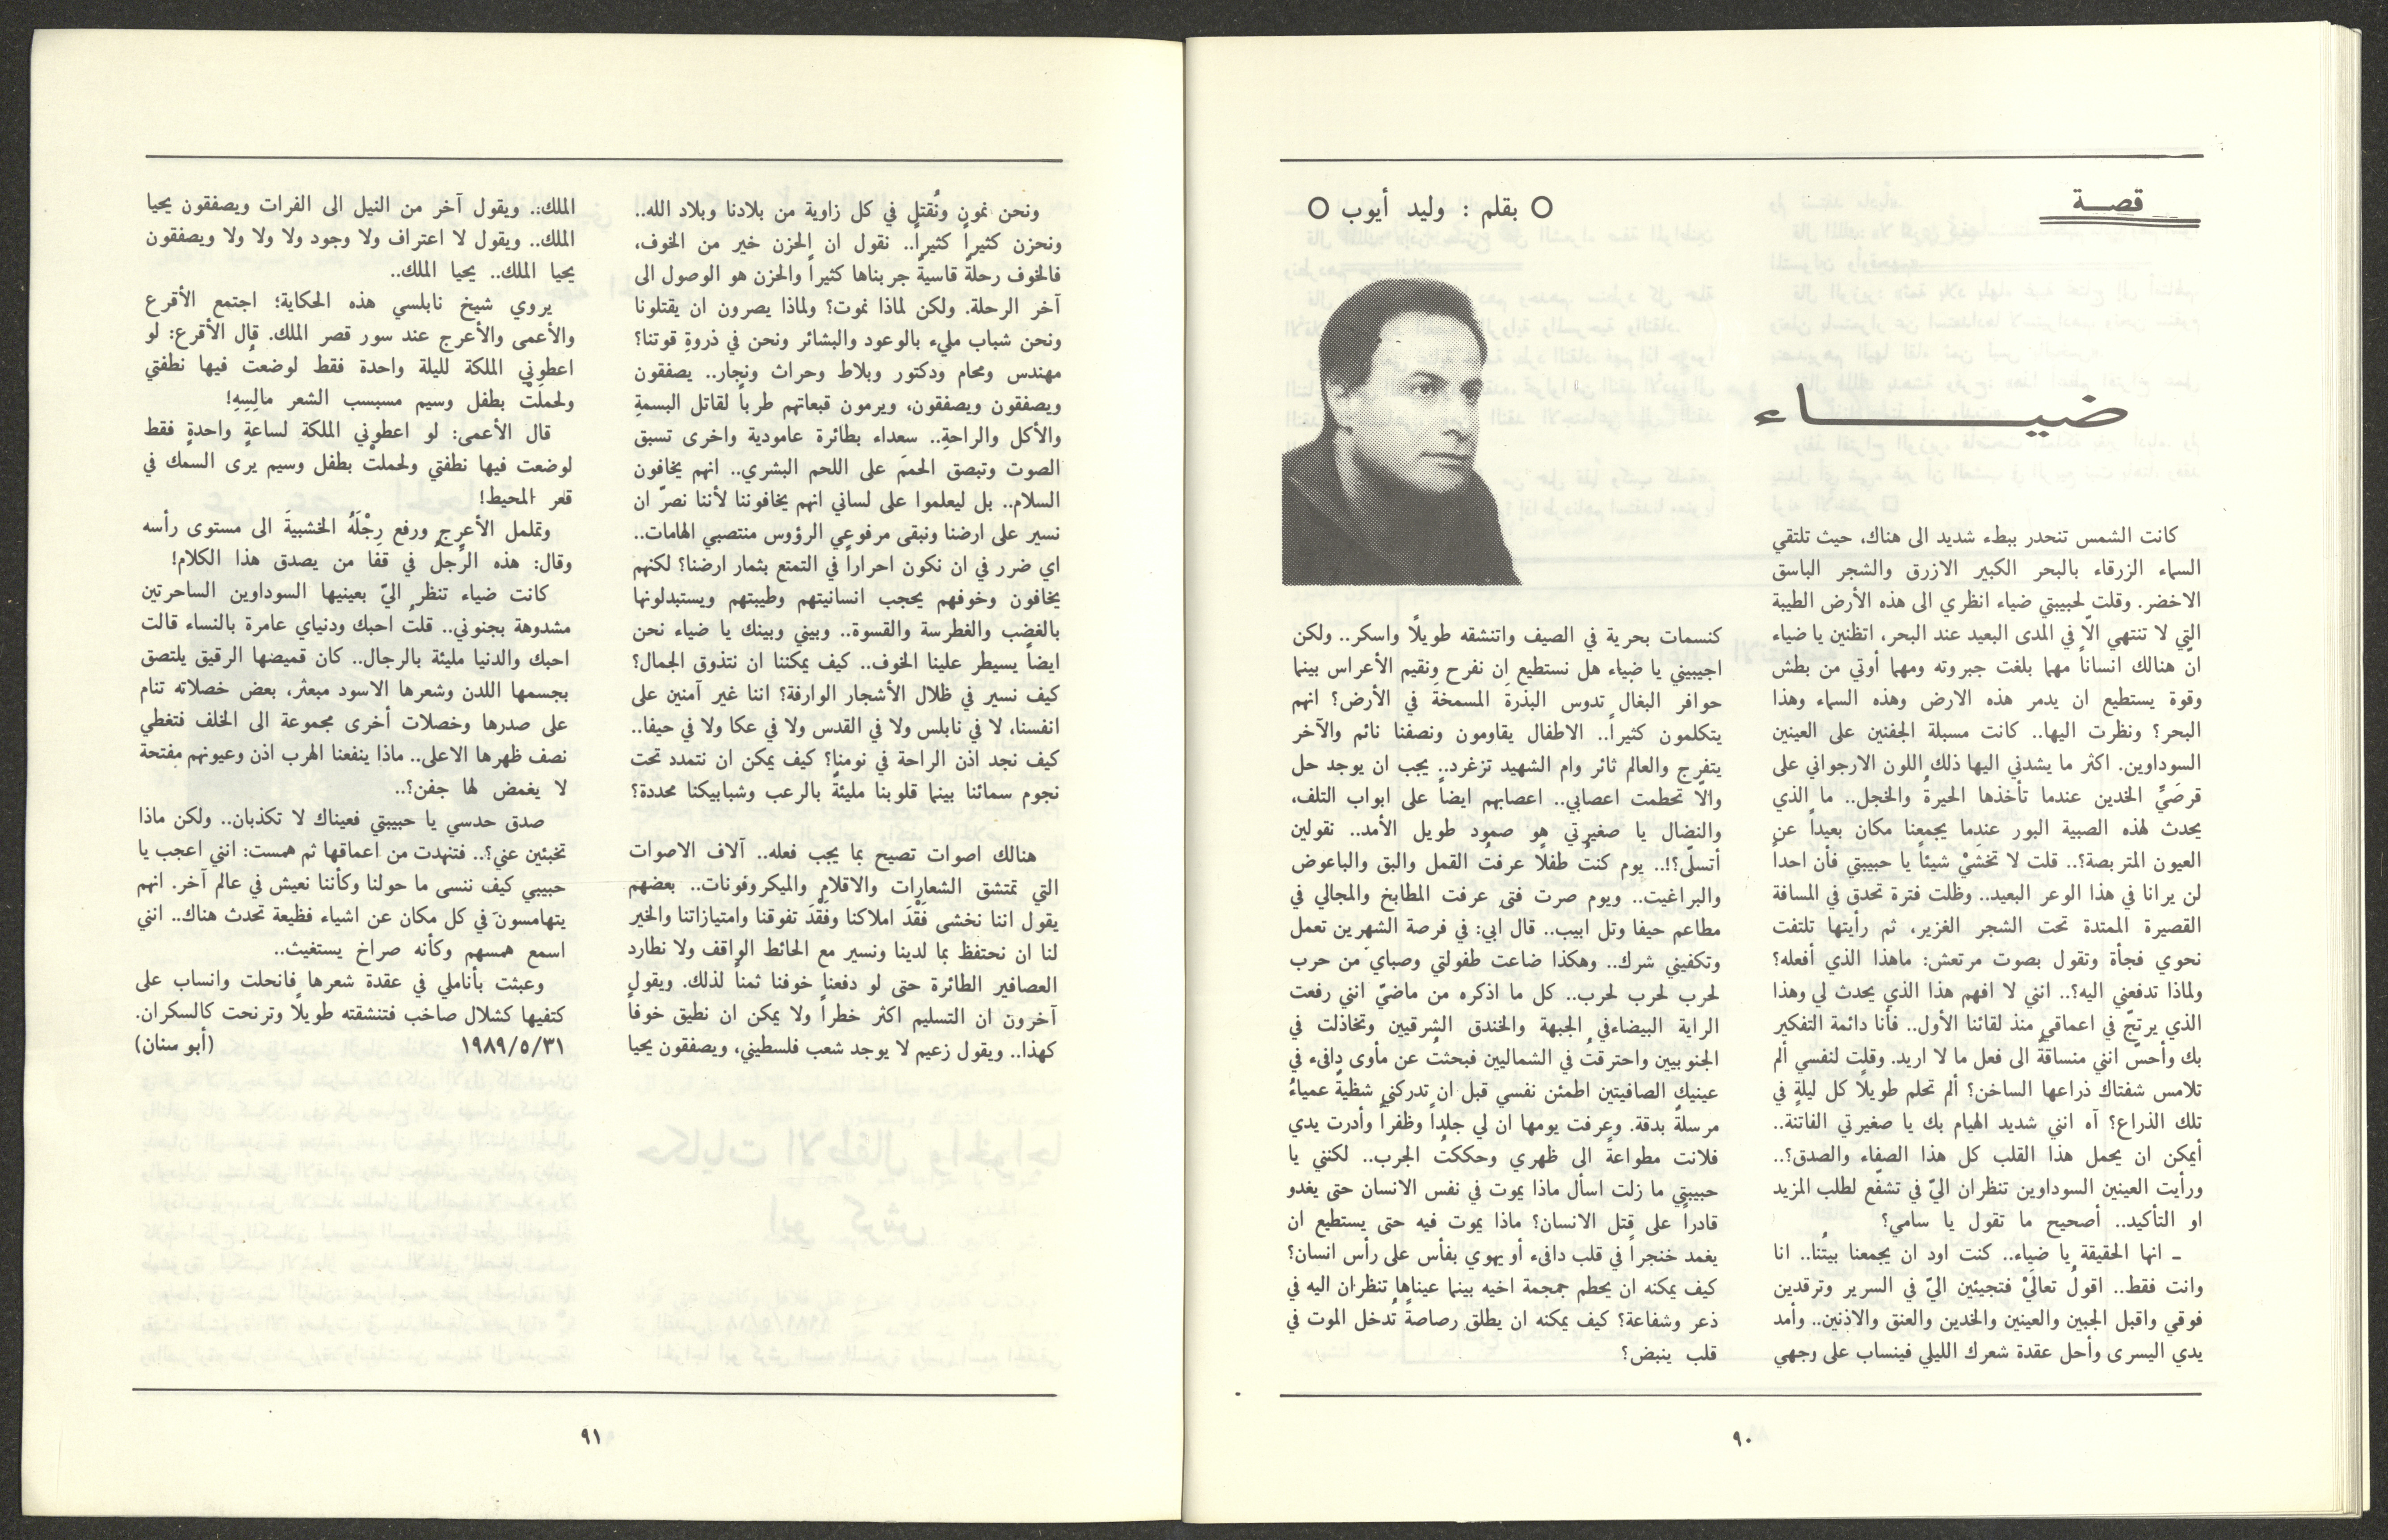 قصـة
○ بقلم : وليد أيوب ○
ضيـــاء
كانت الشمس تنحدر ببطء شديد الى هناك، حيث تلتقي
السماء الزرقاء بالبحر الكبير الازرق والشجر الباسق
الاخضر. وقلت لحبيبتي ضياء انظري الى هذه الأرض الطيبة
التي لا تنتهي الاّ في المدى البعيد عند البحر، اتظنين يا ضياء
انّ هنالك انساناً مهما بلغت جبروته ومهما أوتي من بطش
وقوة يستطيع ان يدمر هذه الارض وهذه السماء وهذا
البحر؟ ونظرت اليها.. كانت مسبلة الجفنين على العينين
السوداوين. اكثر ما يشدني اليها ذلك اللون الارجواني على
قرصَيّ الخدين عندما تأخذها الحيرةُ والخجل.. ما الذي
يحدث لهذه الصبية البور عندما يجمعنا مكان بعيداً عن
العيون المتربصة؟.. قلت لا تخشَيْ شيئاً يا حبيبتي فأن احداً
لن يرانا في هذا الوعر البعيد.. وظلت فترة تحدق في المسافة
القصيرة الممتدة تحت الشجر الغزير، ثم رأيتها تلتفت
نحوي فجأة وتقول بصوت مرتعش: ماهذا الذي أفعله؟
ولماذا تدفعني اليه؟.. انني لا افهم هذا الذي يحدث لي وهذا
الذي يرتجّ في اعماقي منذ لقائنا الأول.. فأنا دائمة التفكير
بك وأحسّ انني منساقةٌ الى فعل ما لا اريد. وقلت لنفسي ألم
تلامس شفتاك ذراعها الساخن؟ ألم تحلم طويلاً كل ليلةٍ في
تلك الذراع؟ آه انني شديد الهيام بك يا صغيرتي الفاتنة..
أيمكن ان يحمل هذا القلب كل هذا الصفاء والصدق؟..
ورأيت العينين السوداوين تنظران اليّ في تشفّع لطلب المزيد
او التأكيد.. أصحيح ما تقول يا سامي؟
ـ انها الحقيقة يا ضياء.. كنت اود ان يجمعنا بيتُنا.. انا
وانت فقط.. اقولُ تعالَيْ فتجيئين اليّ في السرير وترقدين
فوقي واقبل الجبين والعينين والخدين والعنق والاذنين.. وأمد
يدي اليسرى وأحل عقدة شعرك الليلي فينساب على وجهي
كنسمات بحرية في الصيف واتنشقه طويلاً واسكر.. ولكن
اجيبيني يا ضياء هل نستطيع ان نفرح ونقيم الأعراس بينما
حوافر البغال تدوس البذرةَ المسمخةَ في الأرض؟ انهم
يتكلمون كثيراً.. الاطفال يقاومون ونصفنا نائم والآخر
يتفرج والعالم ثائر وام الشهيد تزغرد.. يجب ان يوجد حل
والاّ تحطمت اعصابي.. اعصابهم ايضاً على ابواب التلف،
والنضال يا صغيرتي هو صمود طويل الأمد.. نقولين
أتسلّى؟!.. يوم كنتُ طفلاً عرفتُ القمل والبق والباعوض
والبراغيت.. ويوم صرت فتى عرفت المطابخ والمجالي في
مطاعم حيفا وتل ابيب.. قال ابي: في فرصة الشهرين تعمل
وتكفيني شرك.. وهكذا ضاعت طفولتي وصباي من حرب
لحرب لحرب لحرب.. كل ما اذكره من ماضيّ انني رفعت
الراية البيضاءفي الجبهة والخندق الشرقيين وتخاذلت في
الجنوبيين واحترقتُ في الشماليين فبحثتُ عن مأوى دافىء في
عينيكِ الصافيتين اطمئن نفسي قبل ان تدركني شظيةً عمياءُ
مرسلةً بدقة. وعرفت يومها ان لي جلداً وظفراً وأدرت يدي
فلانت مطواعةً الى ظهري وحككتُ الجرب.. لكنني يا
حبيبتي ما زلت اسأل ماذا يموت في نفس الانسان حتى يغدو
قادراً على قتل الانسان؟ ماذا يموت فيه حتى يستطيع ان
يغمد خنجراً في قلب دافىء أو يهوي بفأس على رأس انسان؟
كيف يمكنه ان يحطم جمجمة اخيه بينما عيناها تنظران اليه في
ذعر وشفاعة؟ كيف يمكنه ان يطلق رصاصةً تُدخل الموت في
قلب ينبض؟
٩٠
ونحن نمون ونُقتل في كل زاوية من بلادنا وبلاد الله..
ونحزن كثيراً كثيراً.. نقول ان الحزن خير من الخوف،
فالخوف رحلةٌ قاسيةٌ جربناها كثيراً والحزن هو الوصول الى
آخر الرحلة. ولكن لماذا نموت؟ ولماذا يصرون ان يقتلونا
ونحن شباب مليء بالوعود والبشائر ونحن في ذروةِ قوتنا؟
مهندس ومحام ودكتور وبلاط وحراث ونجار.. يصفقون
ويصفقون ويصفقون، ويرمون قبعاتهم طرباً لقاتل البسمةِ
والأكل والراحةِ.. سعداء بطائرة عامودية واخرى تسبق
الصوت وتبصق الحممَ على اللحم البشري.. انهم يخافون
السلام.. بل ليعلموا على لساني انهم يخافوننا لأننا نصرّ ان
نسير على ارضنا ونبقى مرفوعي الرؤوس منتصبي الهامات..
اي ضرر في ان نكون احراراً في التمتع بثمار ارضنا؟ لكنهم
يخافون وخوفهم يحجب انسانيتهم وطيبتهم ويستبدلونها
بالغضب والغطرسة والقسوة.. وبيني وبينك يا ضياء نحن
ايضاً يسيطر علينا الخوف.. كيف يمكننا ان نتذوق الجمال؟
كيف نسير في ظلال الأشجار الوارفة؟ اننا غير آمنين على
انفسنا، لا في نابلس ولا في القدس ولا في عكا ولا في حيفا..
كيف نجد اذن الراحة في نومنا؟ كيف يمكن ان نتمدد تحت
نجوم سمائنا بينما قلوبنا مليئةٌ بالرعب وشبابيكنا محددة؟
هنالك اصوات تصيح بما يجب فعله.. آلاف الاصوات
التي تمتشق الشعارات والاقلام والميكروفونات.. بعضهم
يقول اننا نخشى فَقْدَ املاكنا وفَقْدَ تفوقنا وامتيازاتنا والخير
لنا ان نحتفظ بما لدينا ونسير مع الحائط الواقف ولا نطارد
العصافير الطائرة حتى لو دفعنا خوفنا ثمناً لذلك. ويقول
آخرون ان التسليم اكثر خطراً ولا يمكن ان نطيق خوفاً
كهذا.. ويقول زعيم لا يوجد شعب فلسطيني، ويصفقون يحيا
الملك.. ويقول آخر من النيل الى الفرات ويصفقون يحيا
الملك.. ويقول لا اعتراف ولا وجود ولا ولا ولا ويصفقون
يحيا الملك.. يحيا الملك..
يروي شيخ نابلسي هذه الحكاية؛ اجتمع الأقرع
والأعمى والأعرج عند سور قصر الملك. قال الأقرع: لو
اعطوني الملكة لليلة واحدة فقط لوضعتُ فيها نطفتي
ولحملَتْ بطفل وسيم مسبسب الشعر مالِسِهِ!
قال الأعمى: لو اعطوني الملكة لساعةٍ واحدةٍ فقط
لوضعت فيها نطفتي ولحملتْ بطفل وسيم يرى السمك في
قعر المحيط!
وتململ الأعرج ورفع رِجْلَهُ الخشبيةَ الى مستوى رأسه
وقال: هذه الرِّجلُ في قفا من يصدق هذا الكلام!
كانت ضياء تنظر اليّ بعينيها السوداوين الساحرتين
مشدوهة بجنوني.. قلتُ احبك ودنياي عامرة بالنساء قالت
احبك والدنيا مليئة بالرجال.. كان قميضها الرقيق يلتصق
بجسمها اللدن وشعرها الاسود مبعثر، بعض خصلاته تنام
على صدرها وخصلات أخرى مجموعة الى الخلف فتغطي
نصف ظهرها الاعلى.. ماذا ينفعنا الهرب اذن وعيونهم مفتحة
لا يغمض لها جفن؟..
صدق حدسي يا حبيبتي فعيناك لا تكذبان.. ولكن ماذا
تخبئين عني؟.. فتنهدت من اعماقها ثم همست: انني اعجب يا
حبيبي كيف ننسى ما حولنا وكأننا نعيش في عالم آخر. انهم
يتهامسون في كل مكان عن اشياء فظيعة تحدث هناك.. انني
اسمع همسهم وكأنه صراخ يستغيث..
وعبثت بأناملي في عقدة شعرها فانحلت وانساب على
كتفيها كشلال صاخب فتنشقته طويلاً وترنحت كالسكران.
٣١/٥/١٩٨٩ (أبو سنان)
٩١